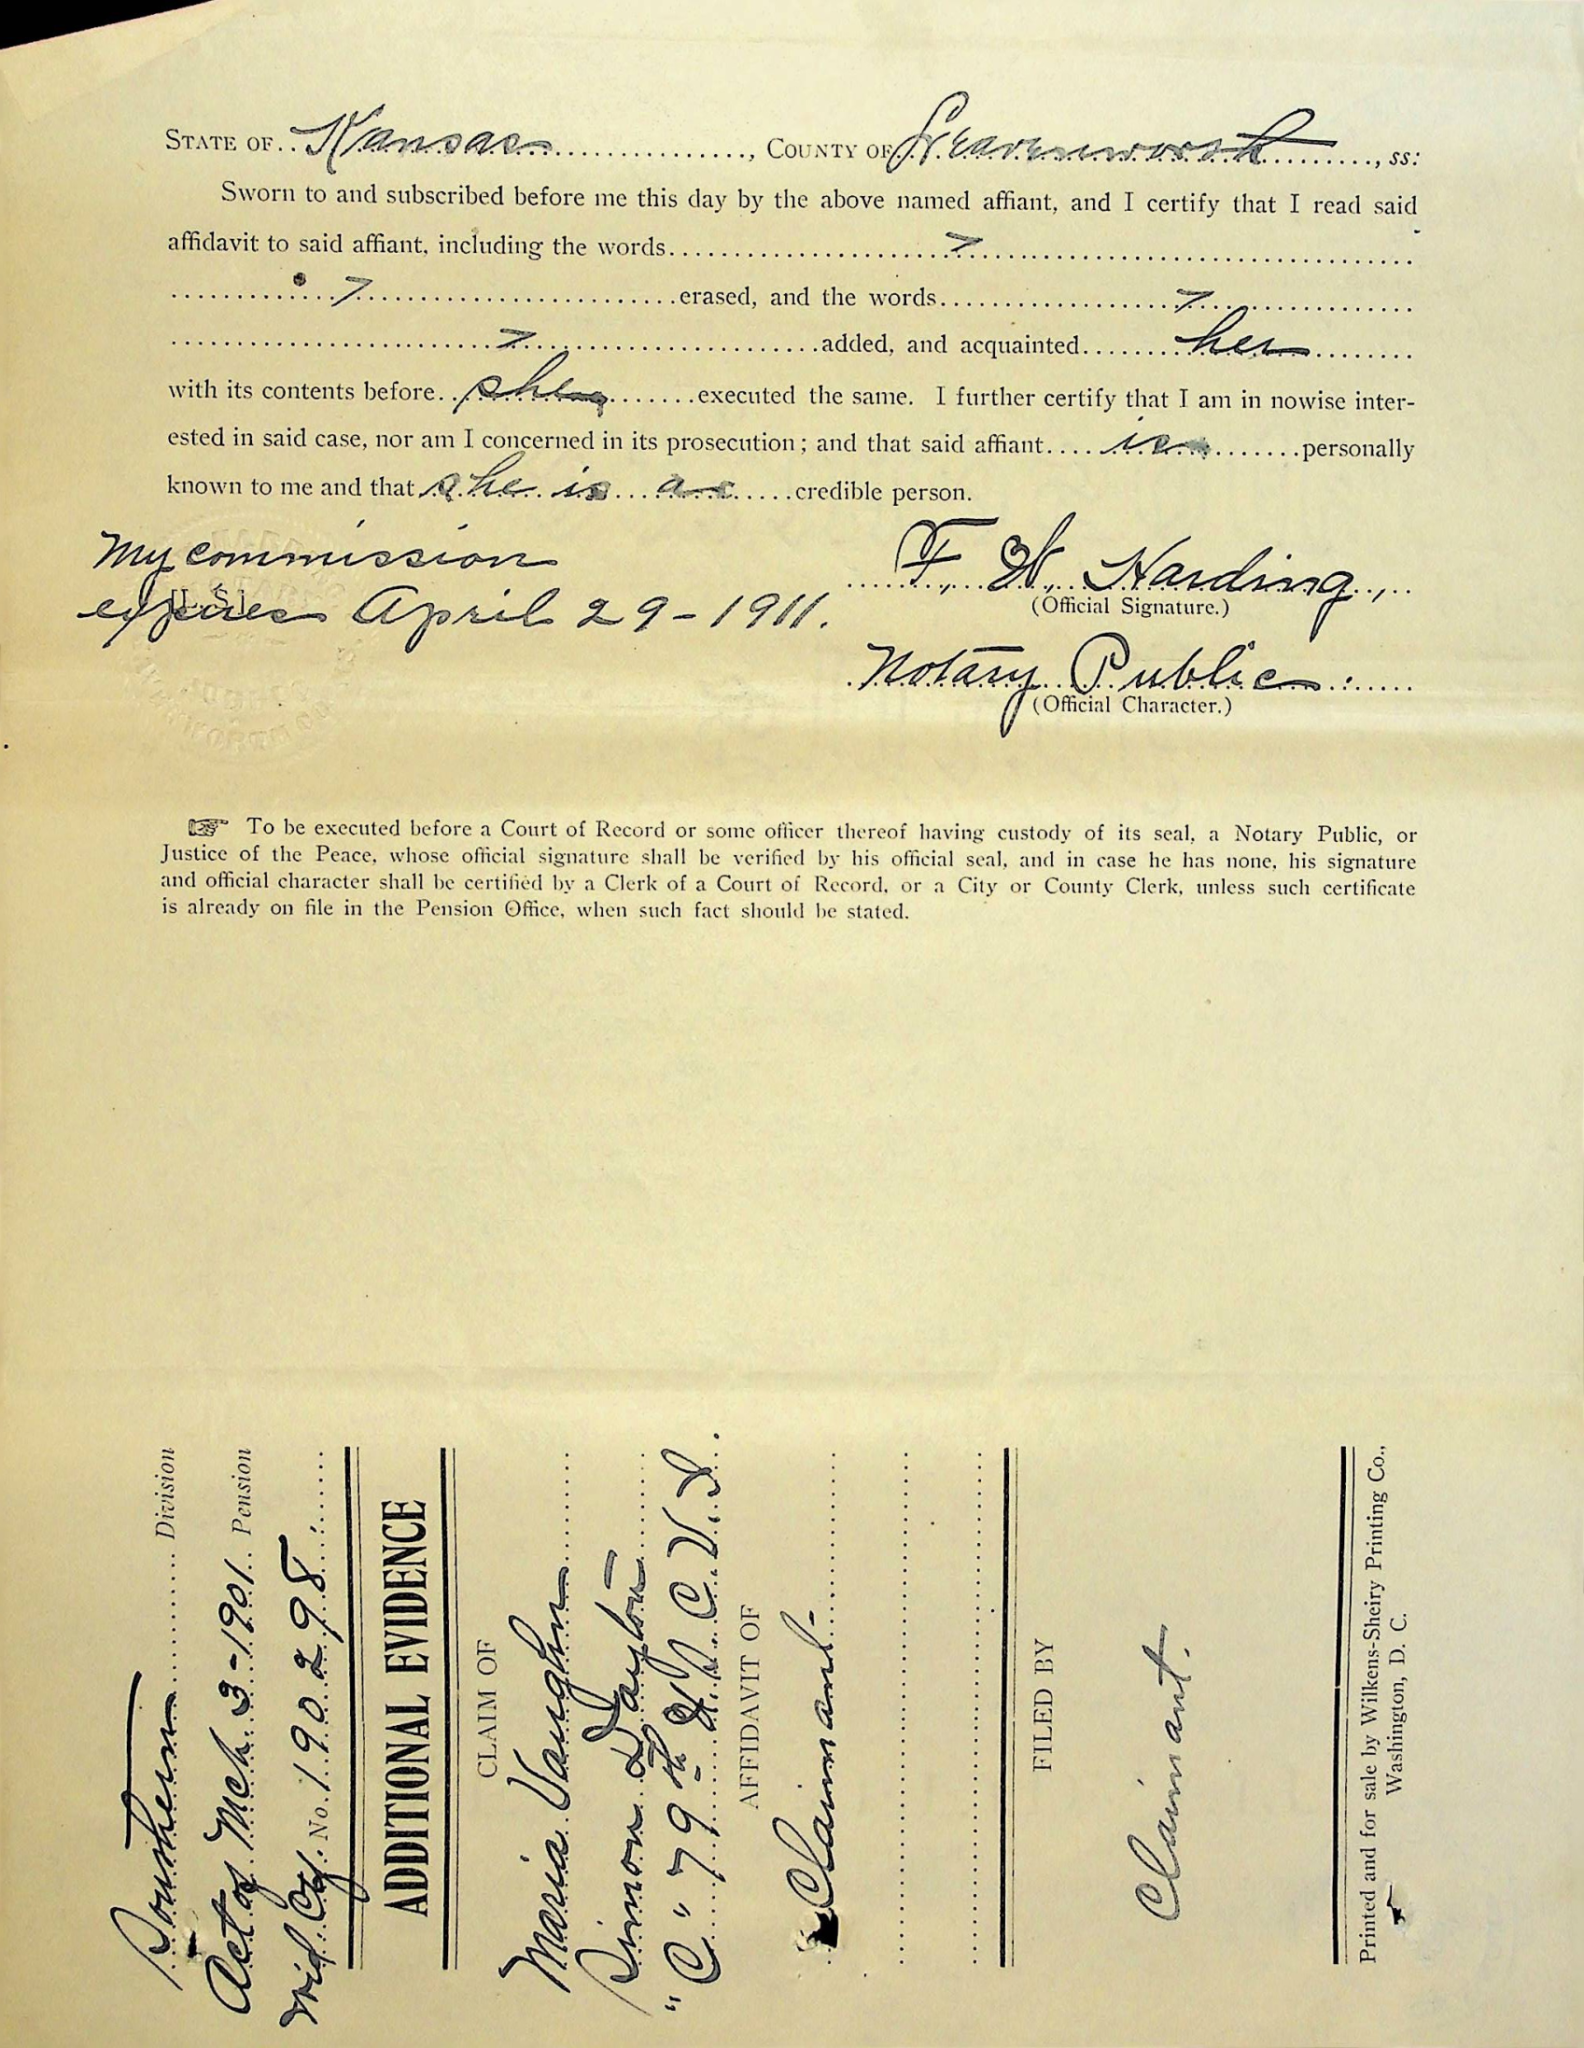 STATE OF Kansas, COUNTY OF Leavenworth, ss:
Sworn to and subscribed before me this day by the above named affiant, and I certify that I read said
affidavit to said affiant, including the words
erased, and the words
added, and acquainted her
with its contents before she executed the same. I further certify that I am in nowise inter-
ested in said case, nor am I concerned in its prosecution; and that said affiant is personally
known to me and that she is a credible person.
My commission
expires April 29-1911.
[L.S.]
F. W. Harding,
(Official Signature.)
Notary Public
(Official Character.)
☞ To be executed before a Court of Record or some officer thereof having custody of its seal, a Notary Public, or
Justice of the Peace, whose official signature shall be verified by his official seal, and in case he has none, his signature
and official character shall be certified by a Clerk of a Court of Record, or a City or County Clerk, unless such certificate
is already on file in the Pension Office, when such fact should be stated.
Southern Division
Act of Mch 3-1901 Pension
Wid. Ctf. No. 190298
ADDITIONAL EVIDENCE
CLAIM OF
Maria Vaughn
Simon Dayton
"C" 79th U.S.C.V.I.
AFFIDAVIT OF
Claimant-
FILED BY
Claimant.
Printed and for sale by Wilkens-Sheiry Printing Co.,
Washington, D. C.